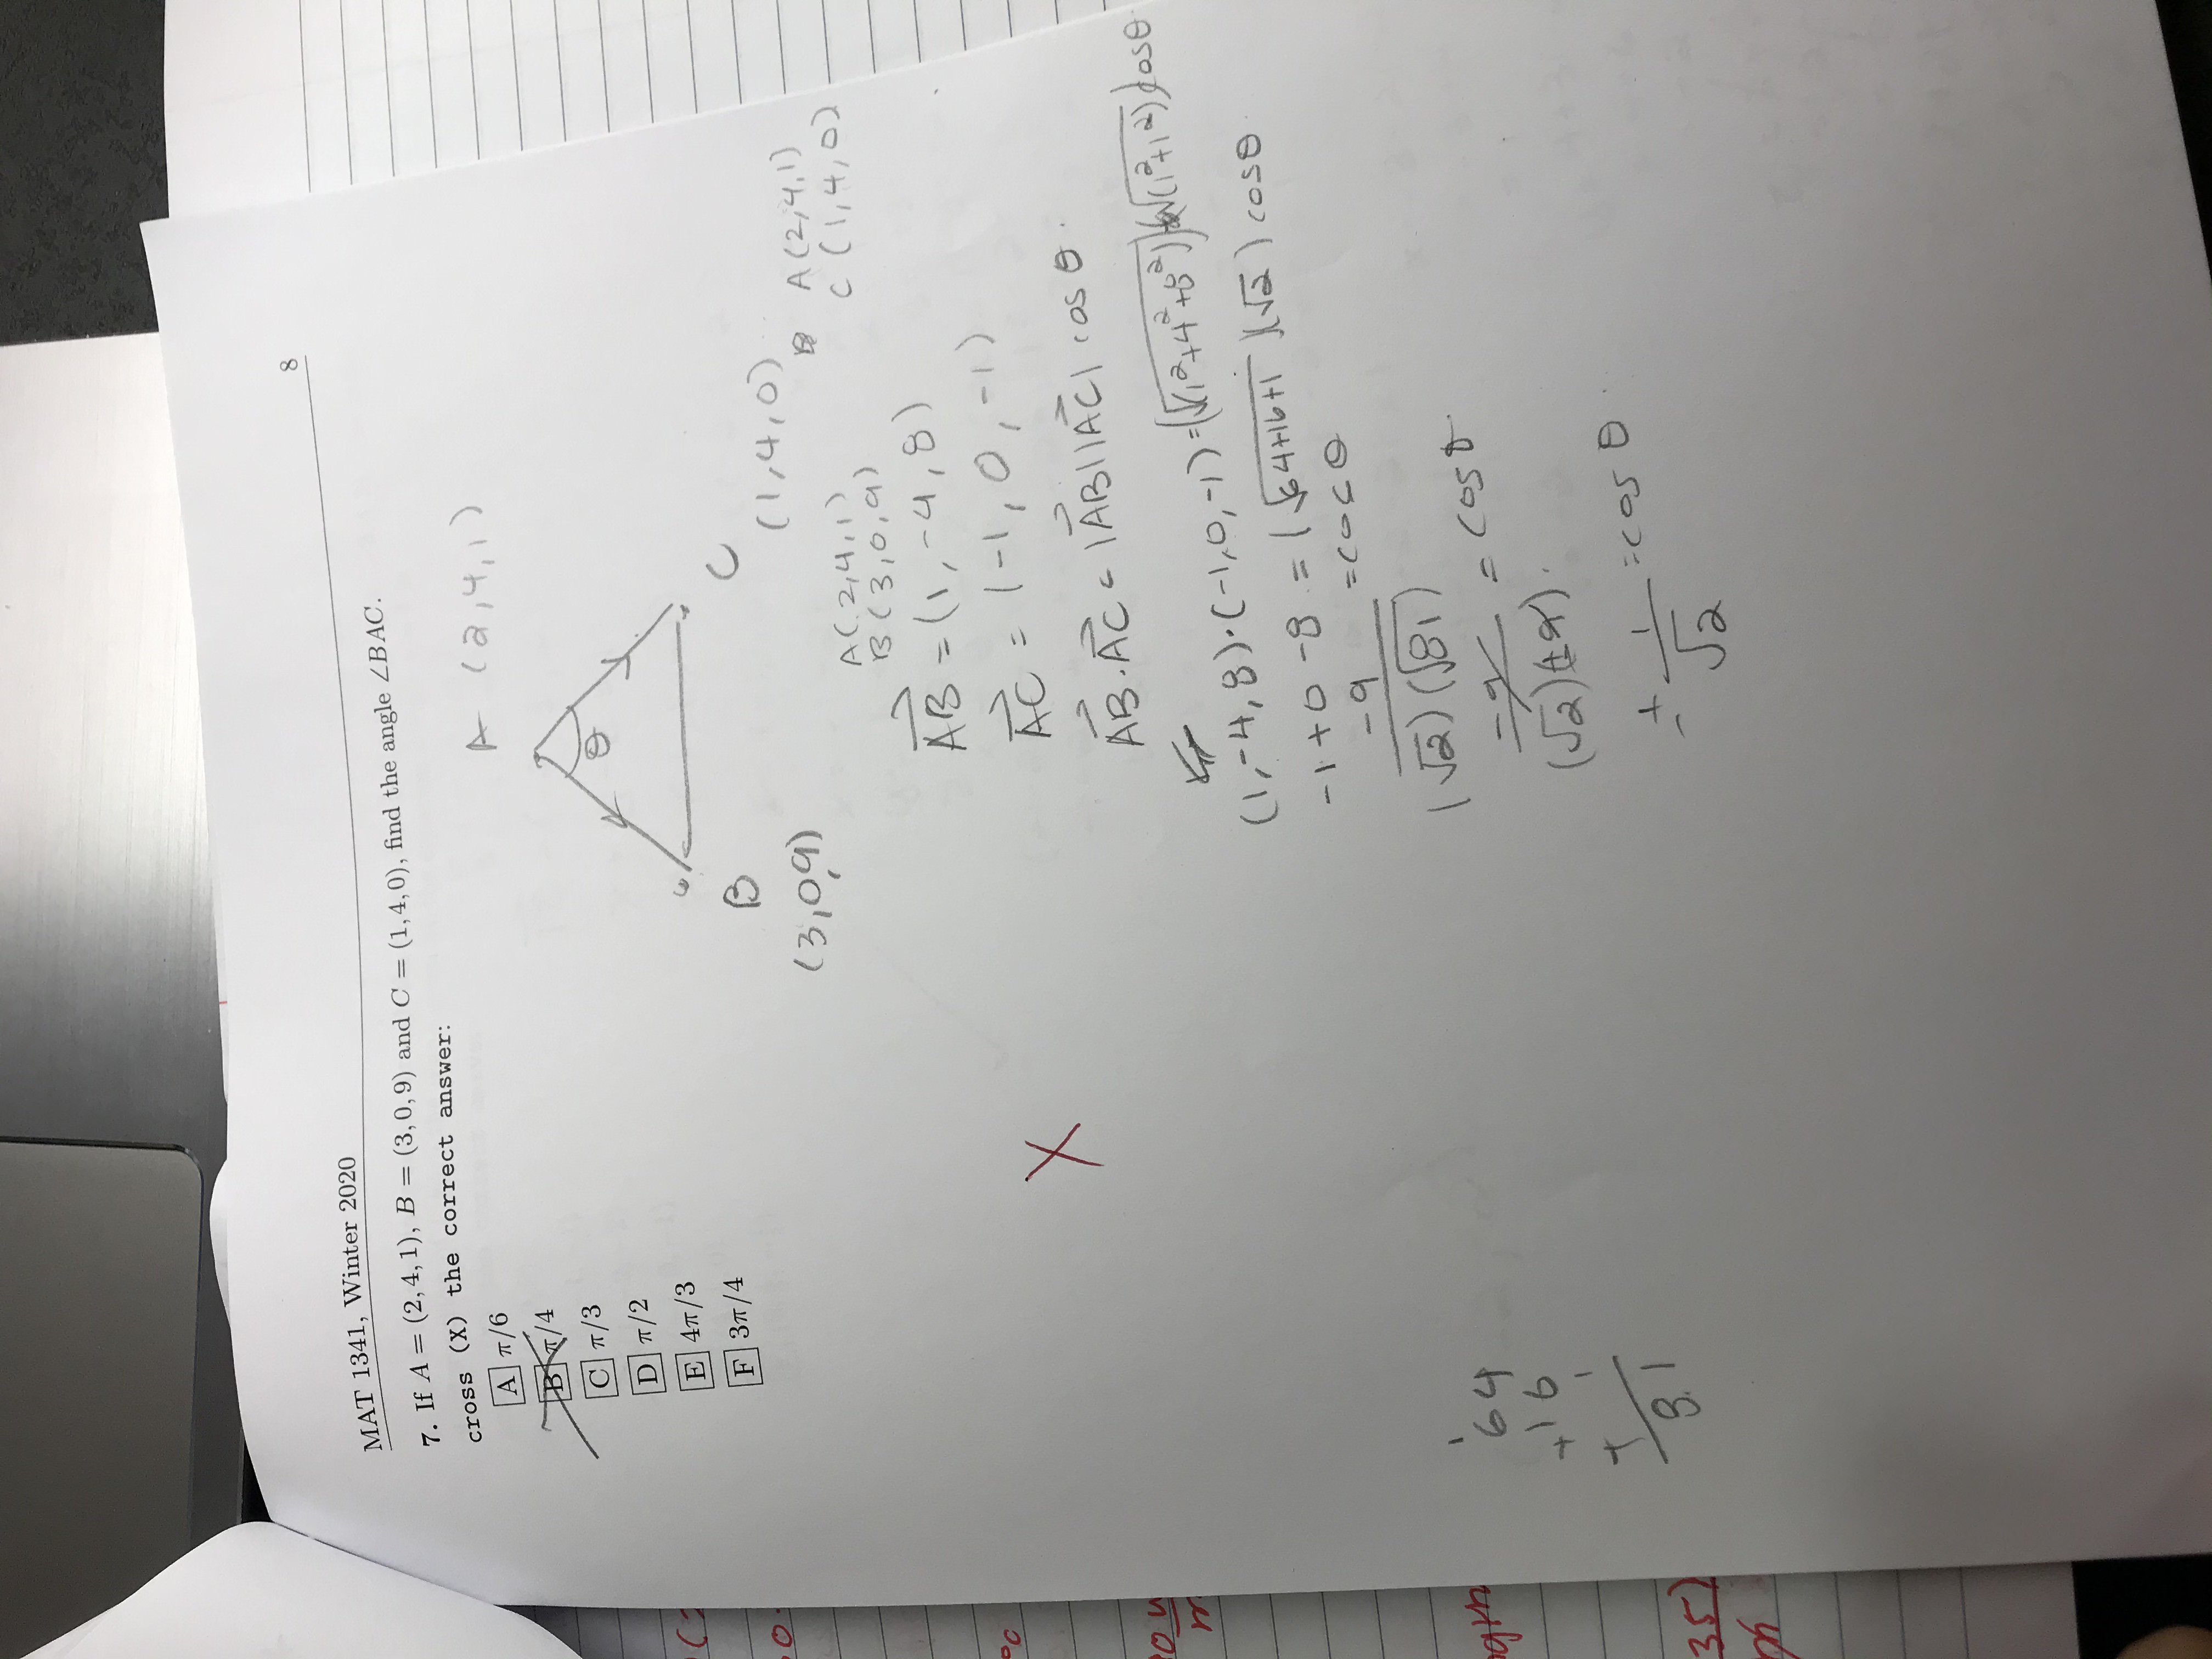 MAT 1341, Winter 2020 8
7. If A = (2, 4, 1), B = (3, 0, 9) and C = (1, 4, 0), find the angle ∠BAC.
cross (X) the correct answer:
A π/6
B π/4
C π/3
D π/2
E 4π/3
F 3π/4
A (2,4,1)
θ
B
(3,0,9)
C
(1,4,0)
A(2,4,1)
B(3,0,9)
A(2,4,1)
C(1,4,0)
AB = (1,-4,8)
AC = (-1,0,-1)
AB·AC = |AB||AC| cos θ.
(1,-4,8)·(-1,0,-1) = (√1²+4²+8²)(√(1²+1²)) cosθ
-1+0-8 = (√64+16+1)(√2) cosθ.
-9 = cos θ
(√2)(√81)
-9 = cos θ.
(√2)(±9).
± 1 = cos θ.
√2
X
64
+16
+ 1
81
(2
0.
%
gth
35)